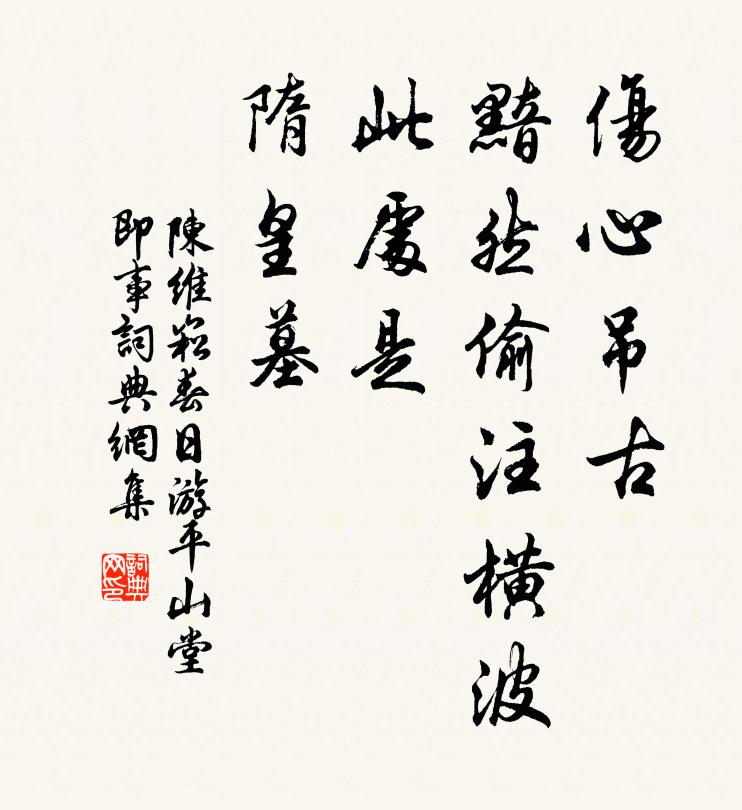 傷心吊古
黯然偷注橫波
此處是
隋皇墓
陳維崧春日游平山堂
即事詞典網集
詞典
网印